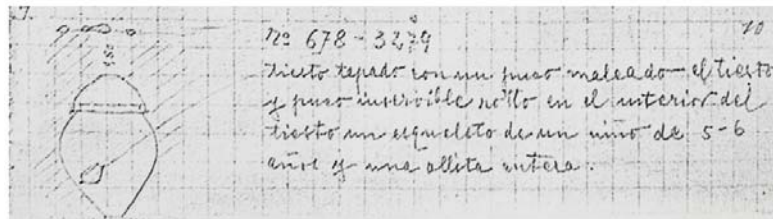 7.
10
Nº 678 - 3279
tiesto tapado con un puco maleado el tiesto
y puco inservible en el interior del
tiesto un esqueleto de un niño de 5-6
años y una ollita entera.